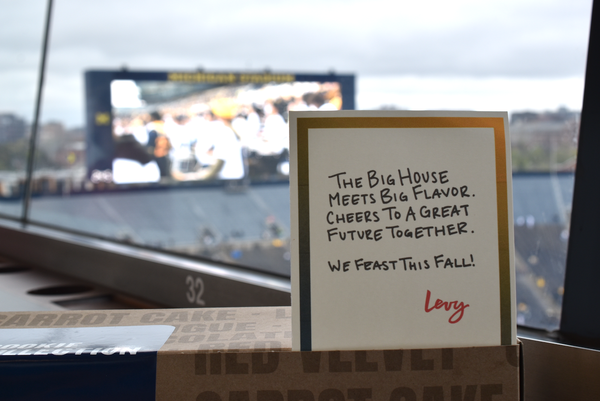 MICHIGAN STADIUM
THE BIG HOUSE
MEETS BIG FLAVOR.
CHEERS TO A GREAT
FUTURE TOGETHER.
WE FEAST THIS FALL!
Levy
32
CARROT CAKE
RED VELVET
CARROT CAKE